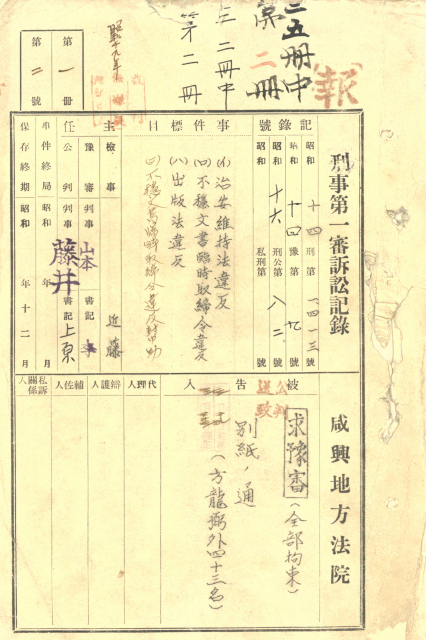 二五冊中
第二冊
五二冊中
第二冊
報
昭和十九年
第一冊
第二號
刑事第一審訴訟記錄
咸興地方法院
記錄號
昭和十四刑第一四一三號
昭和十四豫第九號
昭和十六刑公第八二號
昭和 私刑第 號
事件標目
(イ)治安維持法違反
(ロ)不穩文書臨時取締令違反
(ハ)出版法違反
(ニ)不穩文書臨時取締令違反幇助
主任
檢事 近藤
豫審判事 山本 書記
公判判事 藤井 書記 上原
事件終局 昭和 年 月
保存終期 昭和 年十二月
被告人
公判
送致
求豫審(全部拘束)
別紙ノ通
(方龍弼外四十三名)
代理人
辯護人
補佐人
私訴關係人